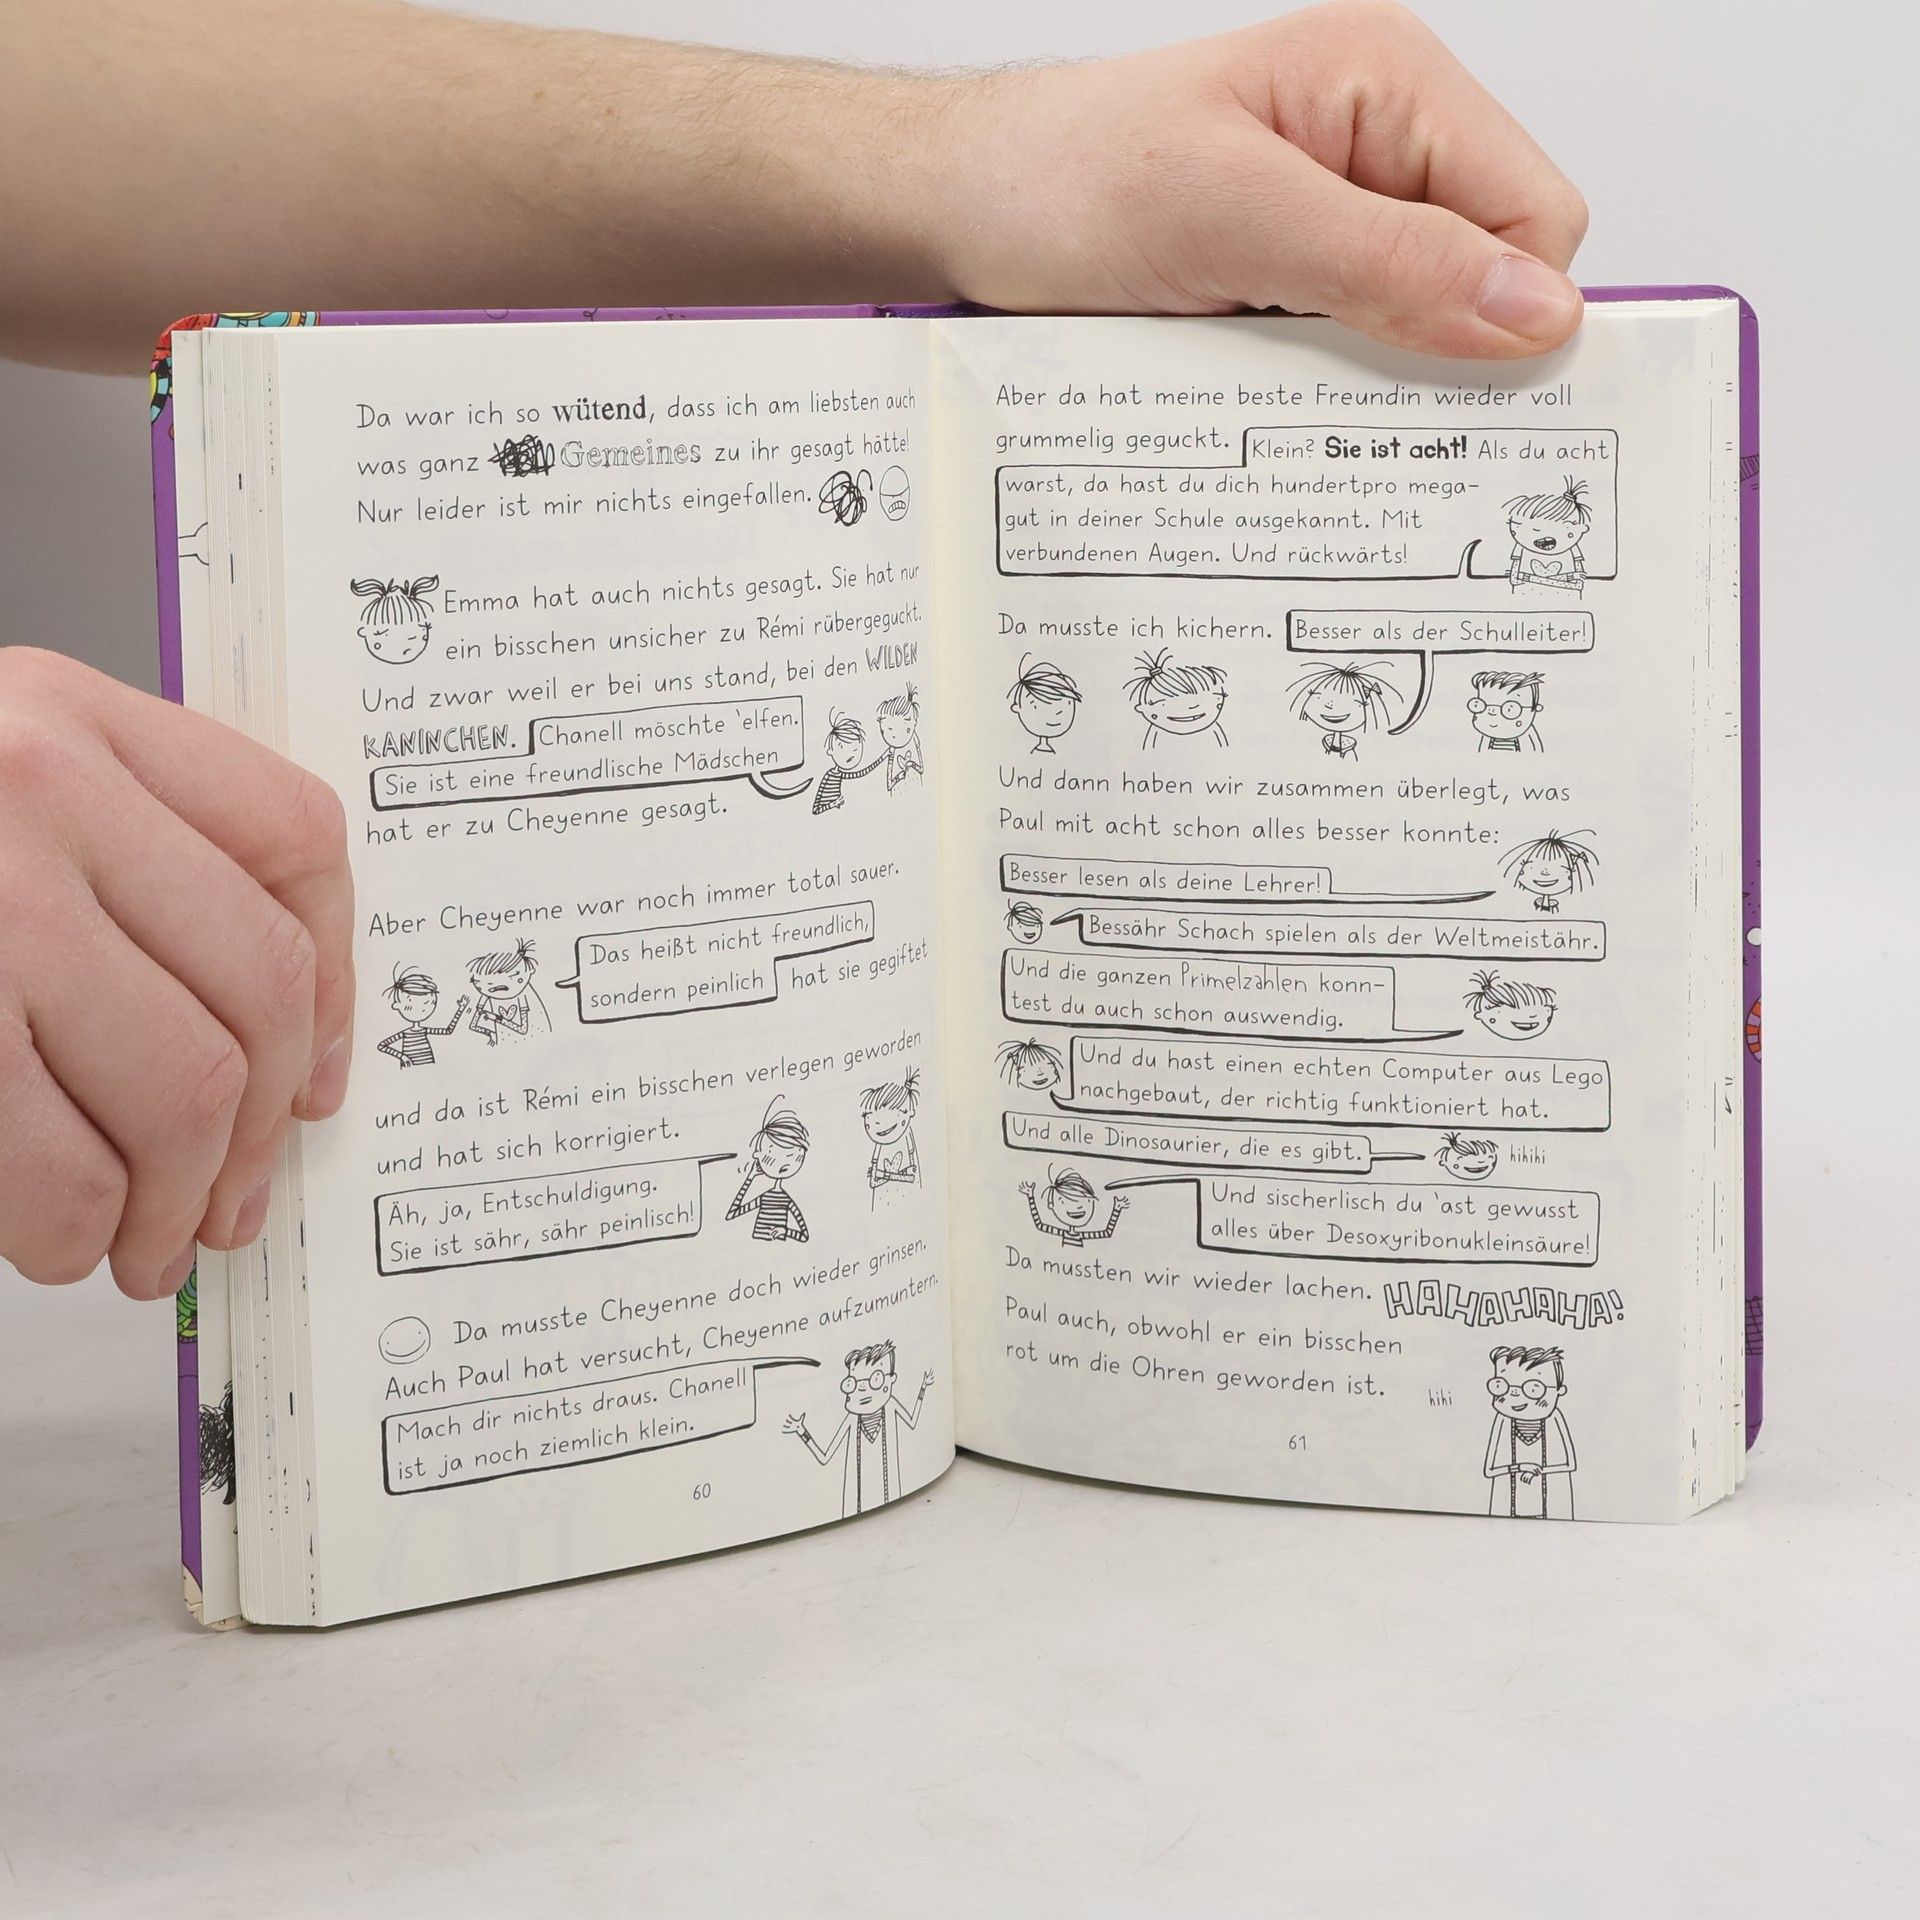 Da war ich so wütend, dass ich am liebsten auch
was ganz Gemeines zu ihr gesagt hätte!
Nur leider ist mir nichts eingefallen.
Emma hat auch nichts gesagt. Sie hat nur
ein bisschen unsicher zu Rémi rübergeguckt.
Und zwar weil er bei uns stand, bei den WILDEN
KANINCHEN. Chanell möschte 'elfen.
Sie ist eine freundlische Mädschen
hat er zu Cheyenne gesagt.
Aber Cheyenne war noch immer total sauer.
Das heißt nicht freundlich,
sondern peinlich hat sie gegiftet
und da ist Rémi ein bisschen verlegen geworden
und hat sich korrigiert.
Äh, ja, Entschuldigung.
Sie ist sähr, sähr peinlisch!
Da musste Cheyenne doch wieder grinsen.
Auch Paul hat versucht, Cheyenne aufzumuntern.
Mach dir nichts draus. Chanell
ist ja noch ziemlich klein.
60
Aber da hat meine beste Freundin wieder voll
grummelig geguckt. Klein? Sie ist acht! Als du acht
warst, da hast du dich hundertpro mega-
gut in deiner Schule ausgekannt. Mit
verbundenen Augen. Und rückwärts!
Da musste ich kichern. Besser als der Schulleiter!
Und dann haben wir zusammen überlegt, was
Paul mit acht schon alles besser konnte:
Besser lesen als deine Lehrer!
Bessähr Schach spielen als der Weltmeistähr.
Und die ganzen Primelzahlen konn-
test du auch schon auswendig.
Und du hast einen echten Computer aus Lego
nachgebaut, der richtig funktioniert hat.
Und alle Dinosaurier, die es gibt. hihihi
Und sischerlisch du 'ast gewusst
alles über Desoxyribonukleinsäure!
Da mussten wir wieder lachen. HAHAHAHA!
Paul auch, obwohl er ein bisschen
rot um die Ohren geworden ist. hihi
61